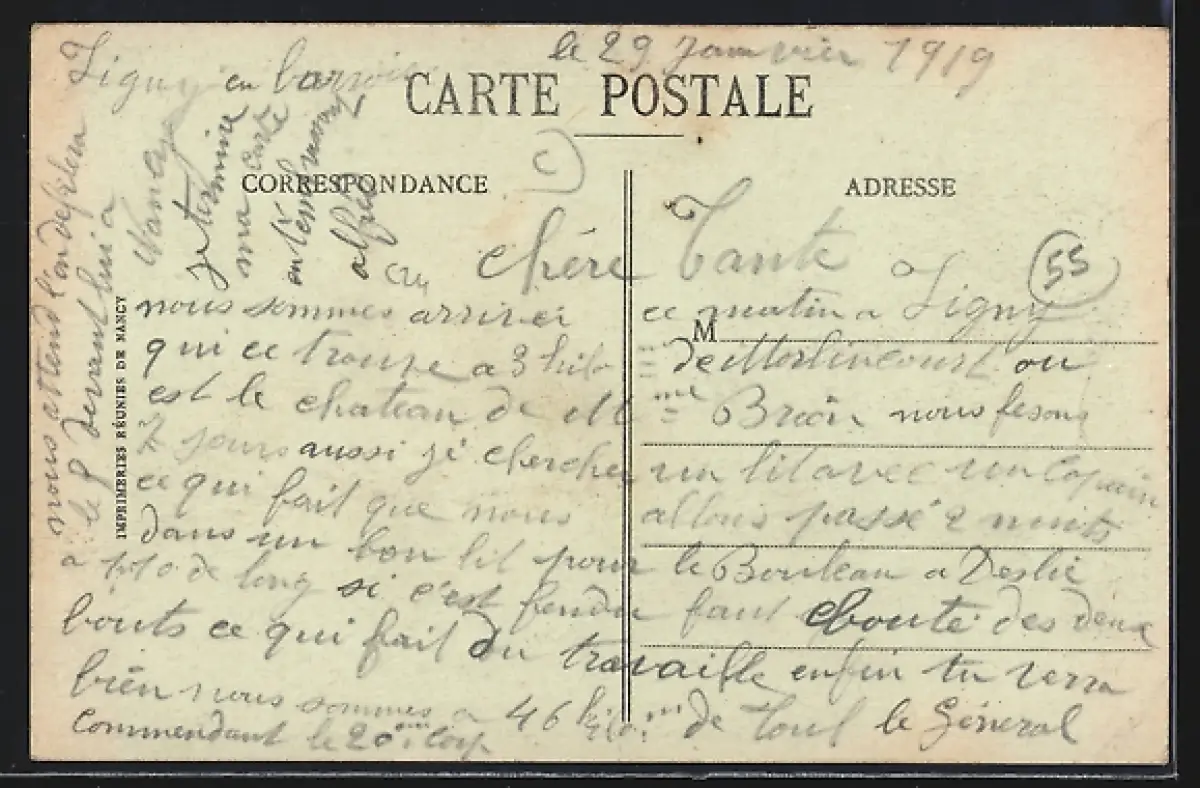 le 29 Janvier 1919
Ligny en barrois
CARTE POSTALE
CORRESPONDANCE
ADRESSE
chére Tante
55
nous sommes arriver ce matin a Ligny
M
qui ce troupe a 3 kilo de Morlincourt ou
est le chateau de Mme Briôn nous fesons
7 jours aussi jé cherche un lit avec un copain
ce qui fait que nous allons passé 2 nuits
dans un bon lit pour le Bouleau a Deslie
a 1,10 de long si c'est fendu faut eboute des deux
bouts ce qui fait du travaille enfin tu verra
bien nous sommes a 46 kilo m de Toul le Géneral
commendant le 20 em Corp
nous attend l'on defilera
le 8 devant lui a
Nancy
je termine
ma carte
en t'embrassant
alfred
IMPRIMERIES RÉUNIES DE NANCY